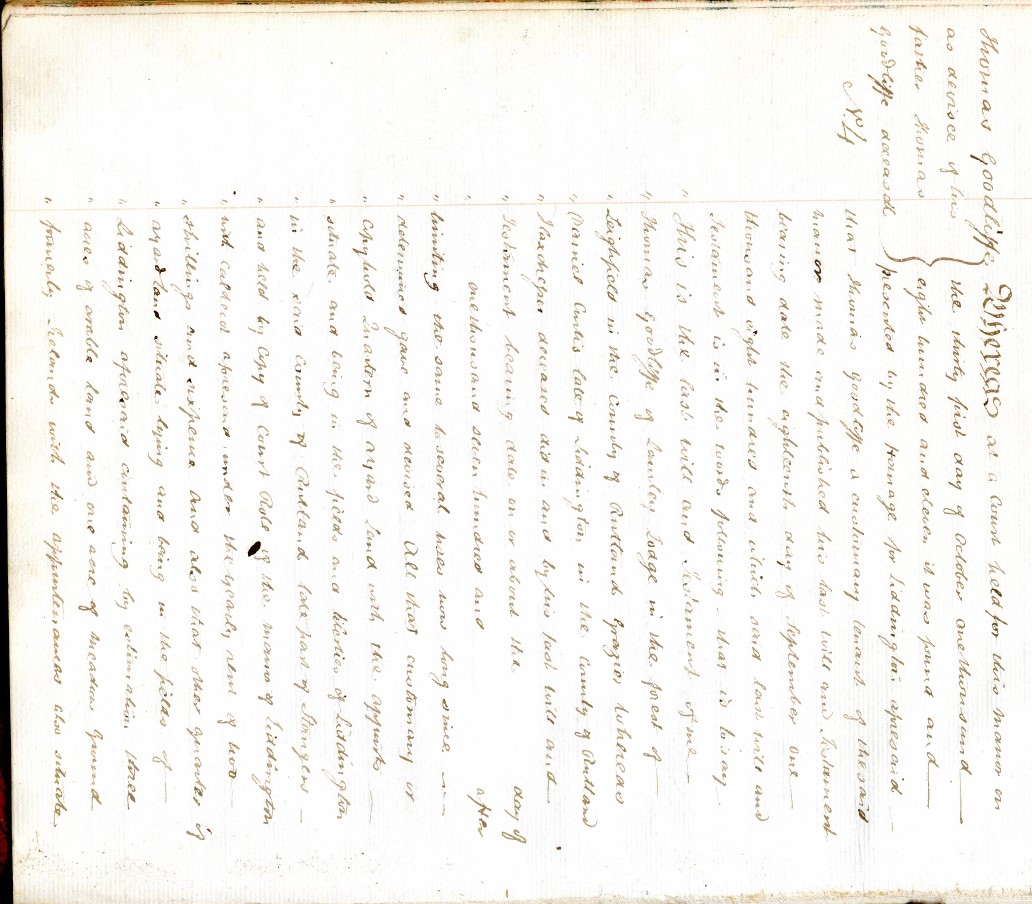 Thomas Goodliffe
as devisee of his
father Thomas
Goodliffe deceased
No. 4
Whereas at a Court held for this manor on
the thirty first day of October one thousand
eight hundred and eleven it was found and
presented by the Homage for Liddington aforesaid
that Thomas Goodliffe a customary tenant of the said
manor made and published his last will and Testament
bearing date the eighteenth day of September one
thousand eight hundred and which said last will and
Testament is in the words following - that is to say
" This is the last will and Testament of me
" Thomas Goodliffe of Lambley Lodge in the forest of
" Leighfield in the county of Rutland Grazier whereas
" Daniel Curtis late of Liddington in the County of Rutland
" deceased did in and by his last will and
" Testament bearing date on or about the day of
" one thousand seven hundred and after
" limiting the same to several uses now long since
" determined gave and devised All that customary or
" Copyhold Quartern of Land with the appurts
" situate and being in the fields and liberties of Liddington
" in the said county of Rutland late part of
" and held by Copy of Court Roll of the manor of Liddington
" with Caldecot aforesaid under the yearly rent of two
" shillings and sixpence And also that other quarter of
" land situate lying and being in the fields of
" Liddington aforesaid containing by estimation three
" acres of arable land and one acre of meadow Ground
" formerly Irelands with the appurtenances also situate